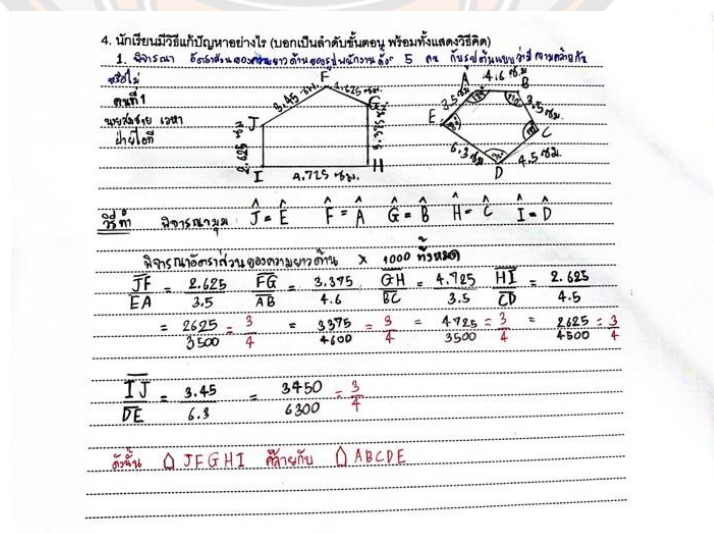 4. นักเรียนมีวิธีแก้ปัญหาอย่างไร (บอกเป็นลำดับขั้นตอน พร้อมทั้งแสดงวิธีคิด)
1. พิจารณา อัตราส่วนของความยาวด้านของรูปพนักงานทั้ง 5 คน กับรูปต้นแบบว่ามีความคล้ายกัน
หรือไม่
คนที่ 1
นายสมชาย เวหา
ฝ่ายไอที
F
3.45 ซม.
1.625 ซม.
J
G
2.625 ซม.
3.375 ซม.
I
4.725 ซม.
H
A
4.6 ซม.
B
3.5 ซม.
3.5 ซม.
E
C
6.3 ซม.
4.5 ซม.
D
วิธีทำ พิจารณามุม Ĵ = Ê F̂ = Â Ĝ = B̂ Ĥ = Ĉ Î = D̂
พิจารณาอัตราส่วนของความยาวด้าน × 1000 ทั้งหมด
JF/EA = 2.625/3.5 FG/AB = 3.375/4.6 GH/BC = 4.725/3.5 HI/CD = 2.625/4.5
= 2625/3500 = 3/4 = 3375/4600 = 3/4 = 4725/3500 = 3/4 = 2625/4500 = 3/4
IJ/DE = 3.45/6.3 = 3450/6300 = 3/4
ดังนั้น ⌂ JFGHI คล้ายกับ ⌂ ABCDE